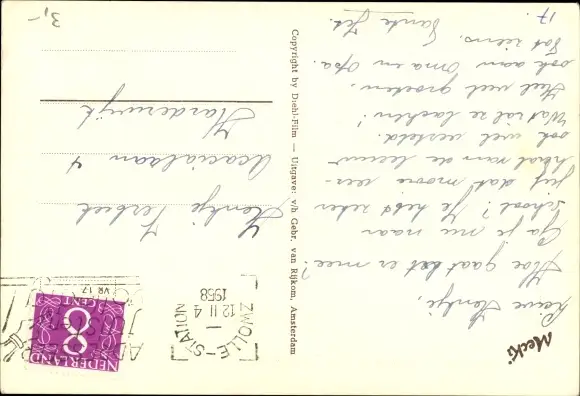 3,-
17.
Mecki
Lieve Henkje,
Hoe gaat het er mee?
Ga je nu naar
school? Je hebt zeker
juf dat mooie ver-
haal van de leeuw
ook wel verteld.
Wat zal ze lachen!
Heel veel groeten,
ook aan Oma en Opa.
Tot ziens,
Tante Jet.
Copyright by Diehl-Film — Uitgave: v/h Gebr. van Rijkom, Amsterdam
ZWOLLE-STATION
12 II 4
1958
NEDERLAND
8
CENT
VR 17
Henkje Verbeek
Acacialaan 4
Harderwijk